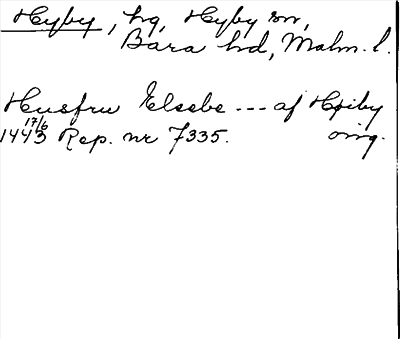 Hyby, hg, Hyby sn,
Bara hd, Malm. l.
Husfru Elsebe --- af Høiby
1443 17/6 Rep. nr 7335. orig.